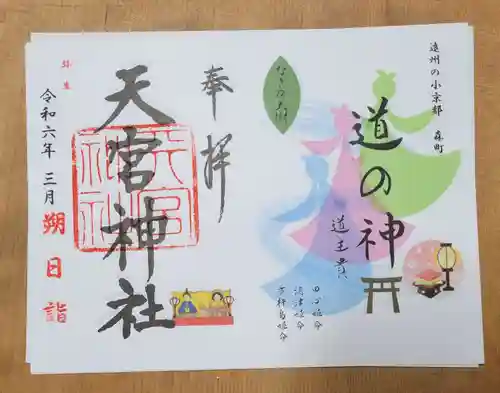 遠州の小京都 森町
道の神
道主貴
田心姫命
湍津姫命
市杵島姫命
奉拝
天宮神社
天宮
神社
弥生
令和六年 三月 朔日詣